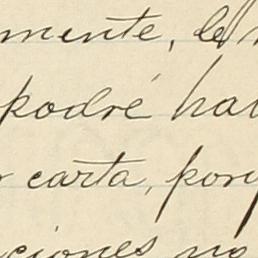 mente, le
podré ha
carta, porq
ciones no